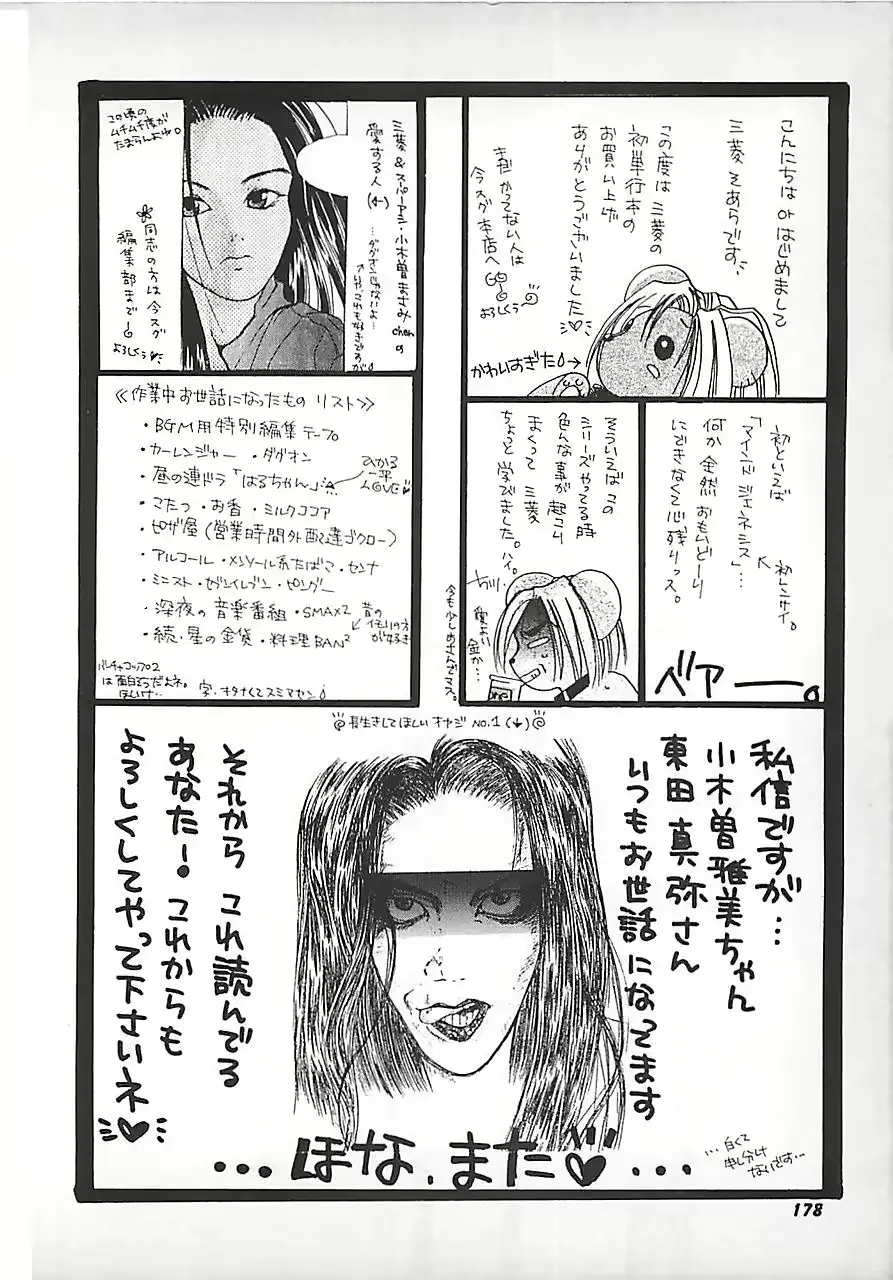 こんにちは or はじめまして
三菱 そあらです
この度は 三菱の
初単行本の
お買い上げ
ありがとうございました
まだ かってない人は
今スグ 本店へ GO
よろしくぅ
かわいすぎた
三菱 & スパーアシ・小木曽まさみchanの
愛する人
(←)
…ダグオンじゃないよ…
この頃の
ムチムチ度が
たまらんよね。
同志の方は今スグ
編集部まで
よろしくぅ
初といえば
「マインド ジェネシス」…
初レンサイ。
何か 全然 おもいどーり
にできなくて心残りっス。
ベアー。
そういえば この
シリーズやってる時
色んな事が 起こり
まくって 三菱
ちょっと 学びました。ハイ。
愛よい
金か…
今も少しあさんでマス。
≪作業中お世話になったもの リスト≫
・BGM用特別編集テープ
・カーレンジャー ・ダグオン
・昼の連ドラ「はるちゃん」
ひかる
一平
LOVE
・マたつ ・お香 ・ミルクココア
・ピザ屋 (営業時間外配達ゴクロー)
・アルコール ・メンソール系たばこ ・センナ
・ミニスト ・セブンイレブン ・ピングー
・深夜の音楽番組 ・SMAX2
昔の
・続・星の金貨 ・料理BAN²
は面白そうだよネ。
字、オタナくてスミマセン
長生きしてほしい オヤジ NO.1 (↓)
私信ですが…
小木曽雅美ちゃん
東田 真弥さん
いつもお世話になってます
それから これ読んでる
あなた! これからも
よろしくしてやって下さいネ
…ほな、また♡…
…白くて
申し分け
ないです…
178